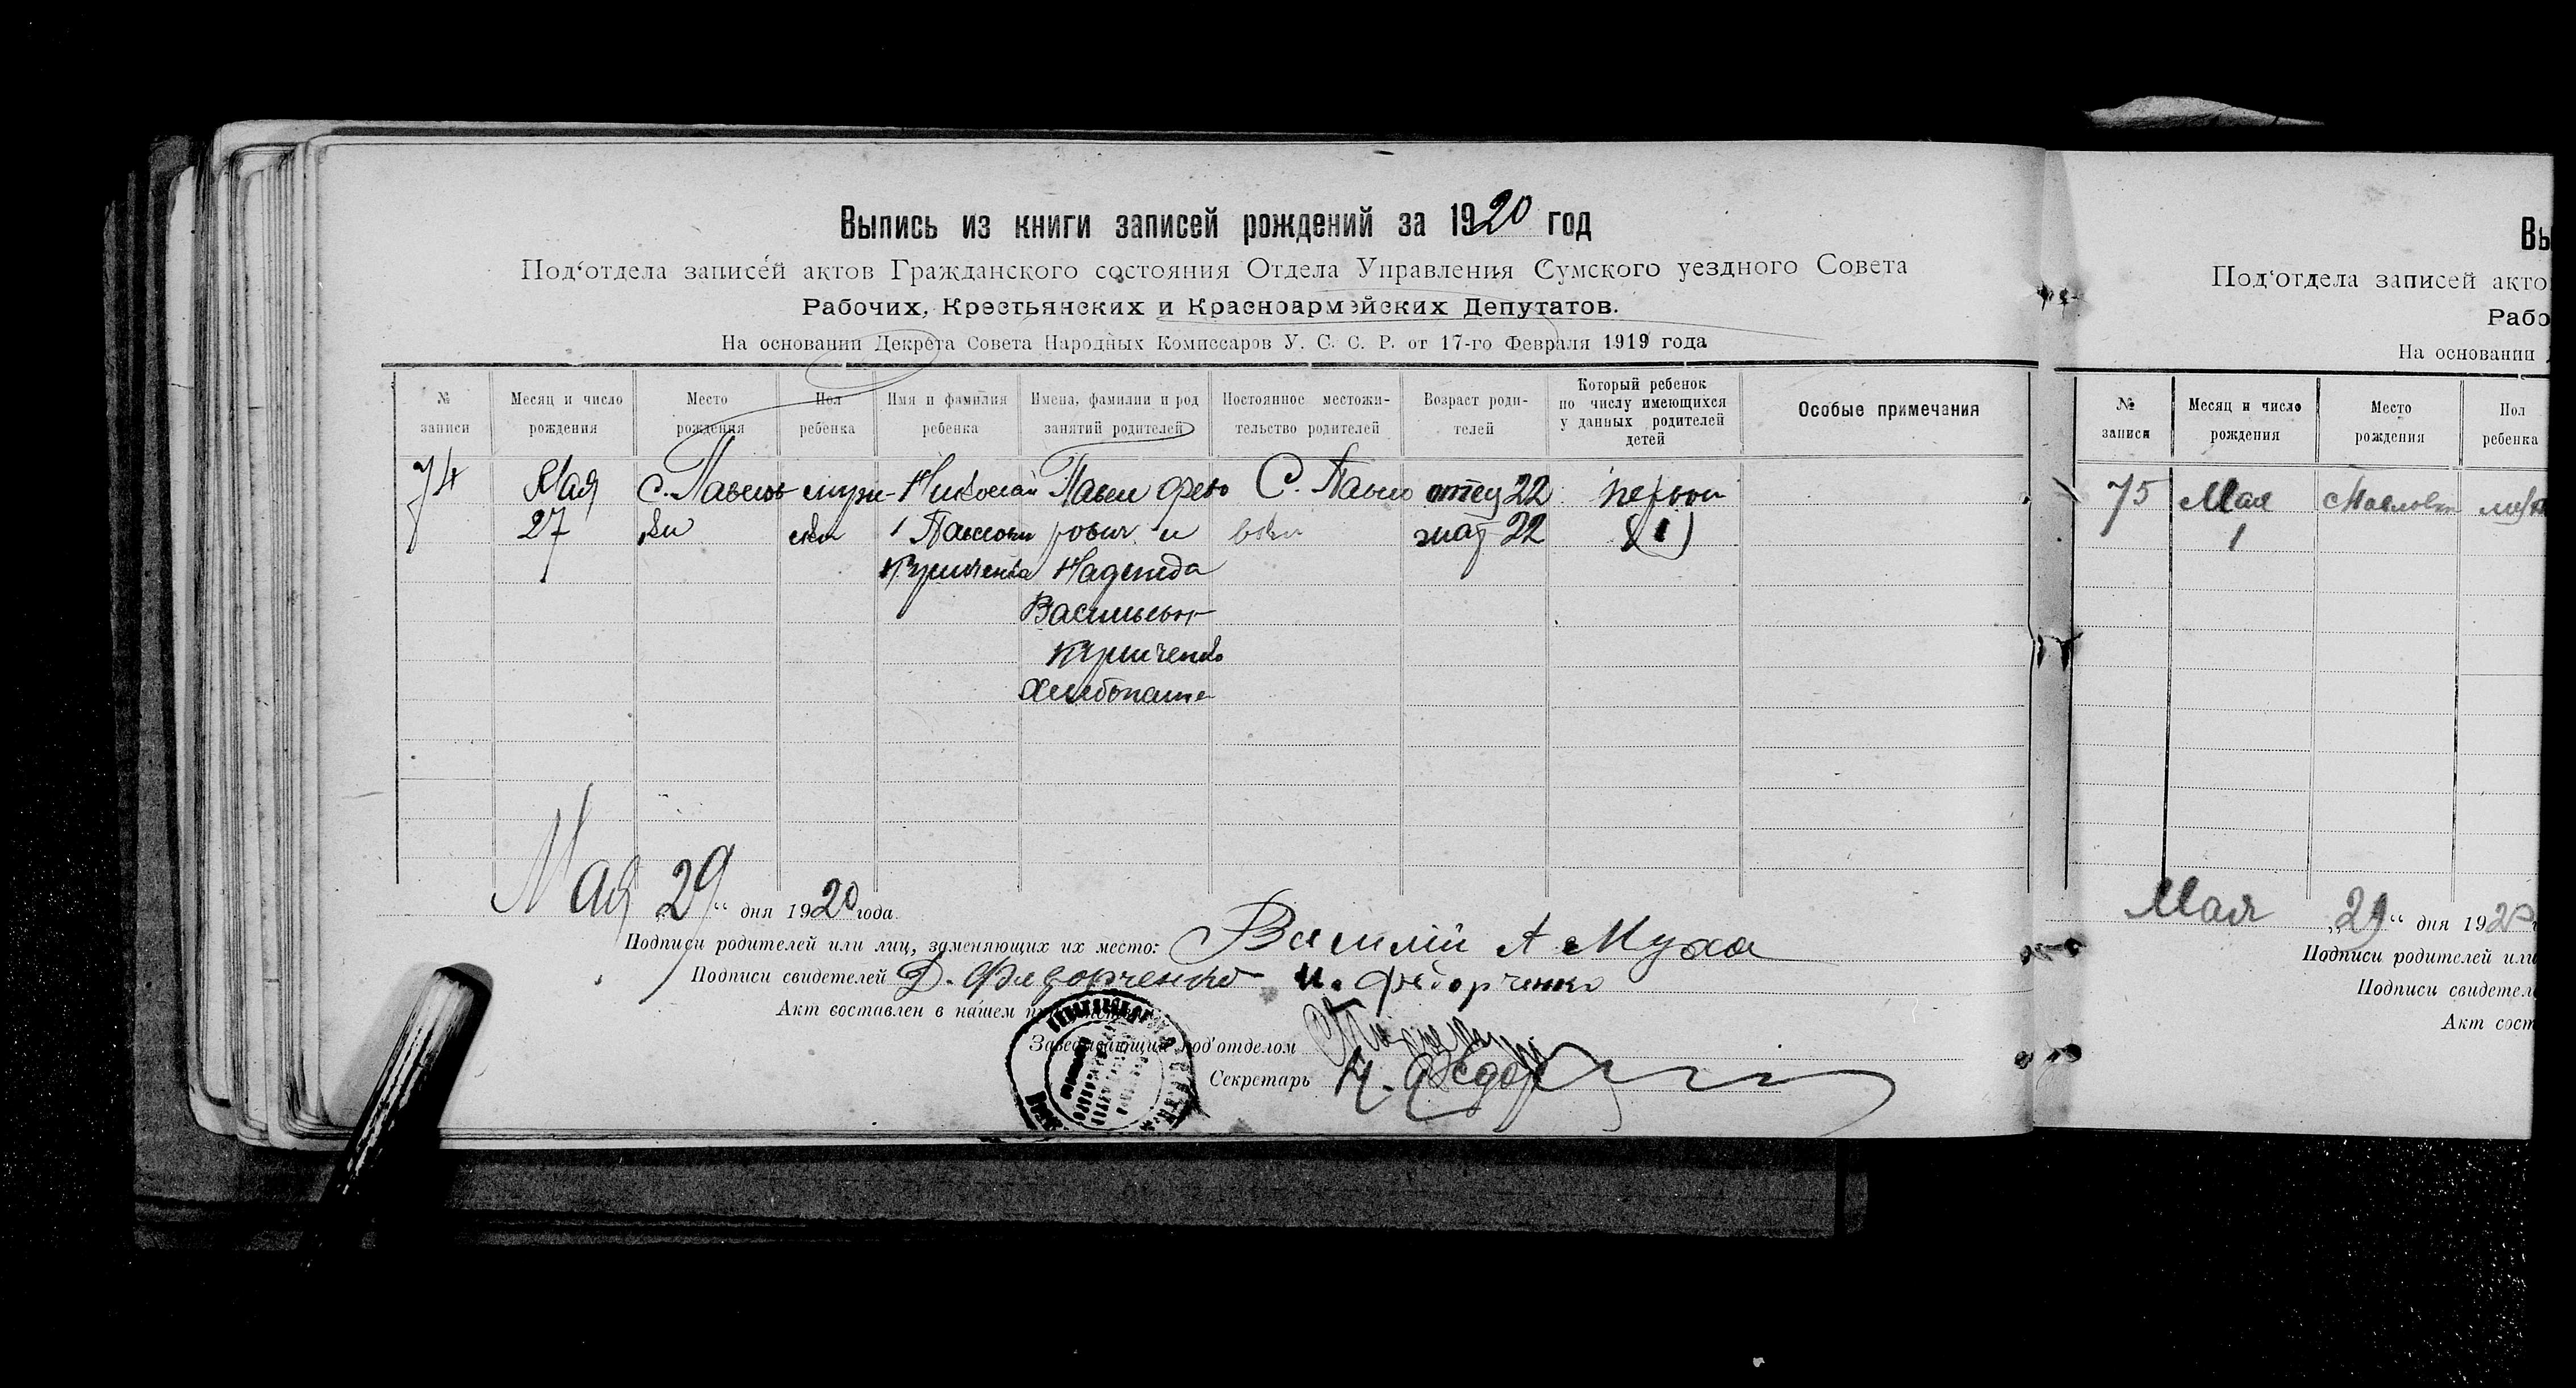 Выпись из книги записей рождений за 1920 год
Под‘отдела записей актов Гражданского состояния Отдела Управления Сумского уездного Совета
Рабочих, Крестьянских и Красноармейских Депутатов.
На основании Декрета Совета Народных Комиссаров У. С. С. Р. от 17-го Февраля 1919 года
№ записи
Месяц и число рождения
Место рождения
Пол ребенка
Имя и фамилия ребенка
Имена, фамилии и род занятий родителей
Постоянное местожительство родителей
Возраст родителей
Который ребенок по числу имеющихся у данных родителей детей
Особые примечания
74 Мая с. Павлов мужс- Николай Павел Федо С. Павло отец 22 первый
27 ки кой Павлович рович и вки мать 22 (1)
Надежда
Васильев
Хлебопаш
Мая „29“ дня 1920 года.
Подписи родителей или лиц, заменяющих их место: Василий А Муха
Подписи свидетелей Д. Федорченко И. Федорченко
Акт составлен в нашем
Заведывающий под‘отделом
Секретарь Н. Федор
Вы
Под‘отдела записей акто
Рабо
На основании
№ записи
Месяц и число рождения
Место рождения
Пол ребенка
75 Мая с Павловки муж
1
Мая „29“ дня 1920
Подписи родителей или
Подписи свидетел
Акт сост